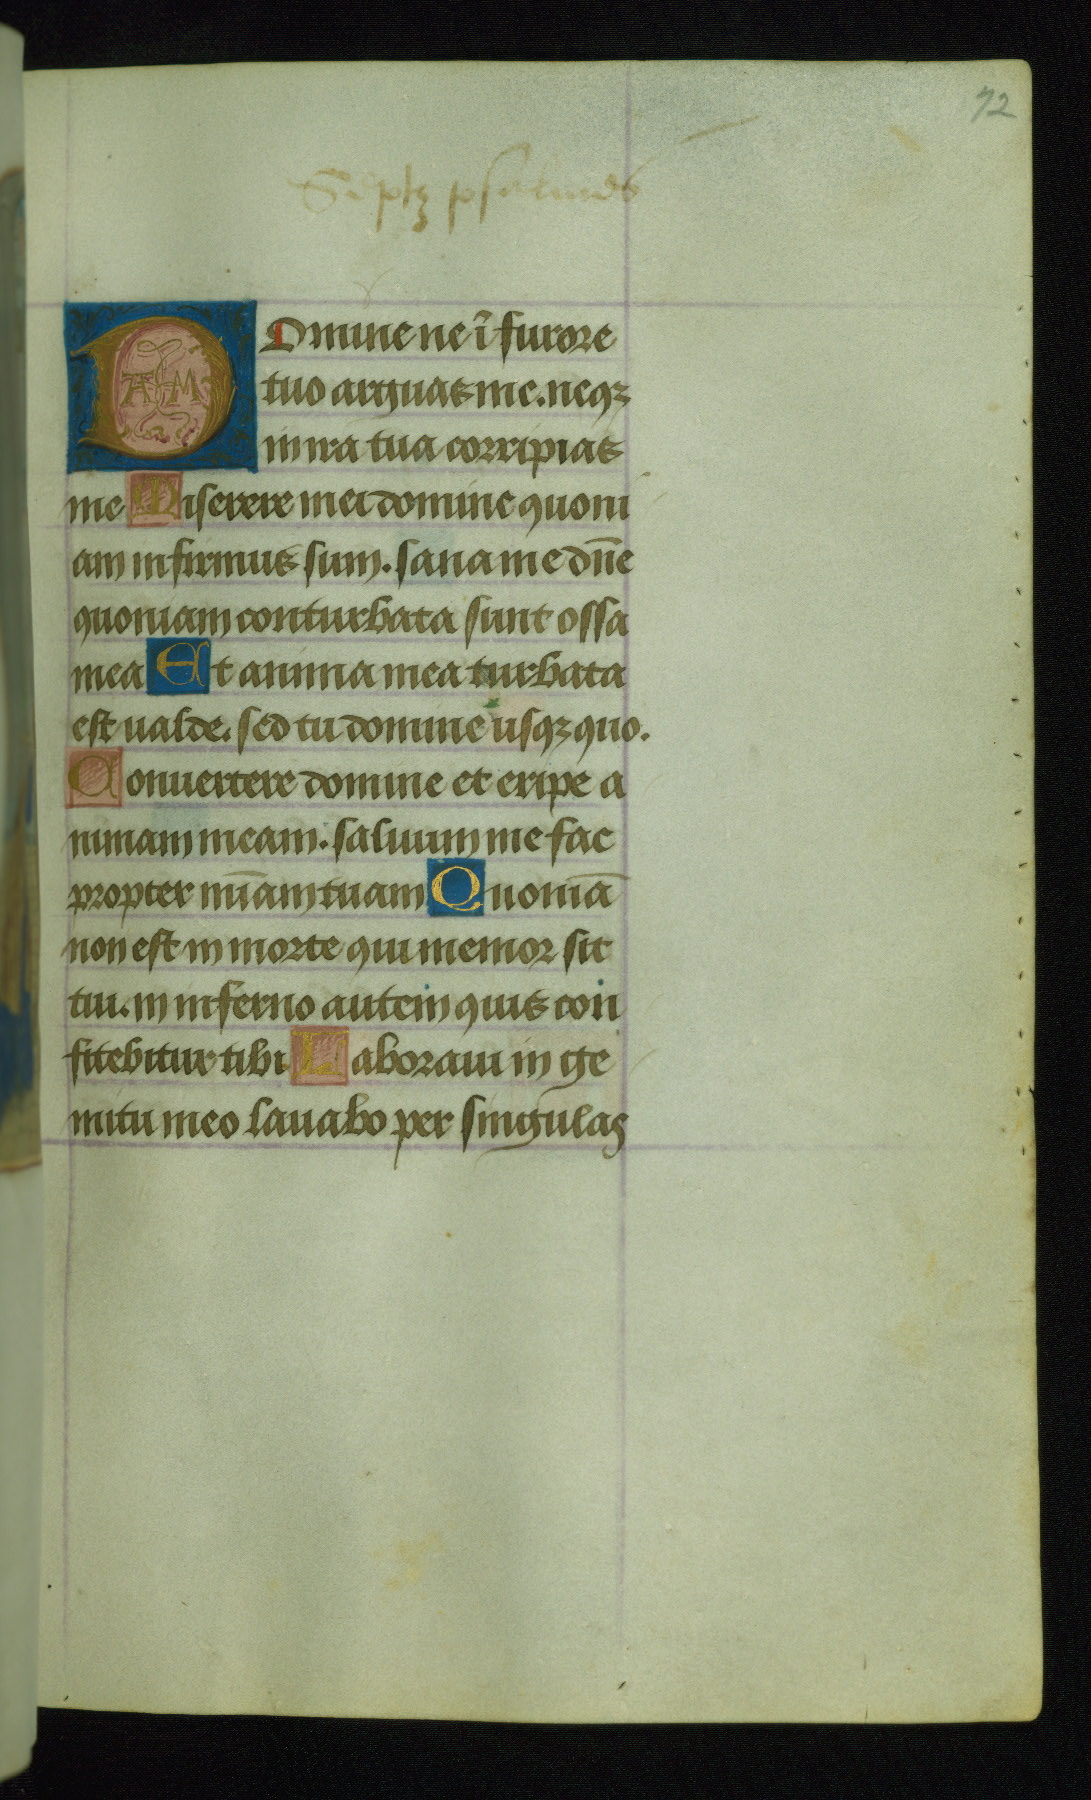 72
Septz psalmes
Domine ne ī furore
tuo arguas me. neqꝫ
in ira tua corripias
me Miserere mei domine quoni
am infirmus sum. sana me dn̄e
quoniam conturbata sunt ossa
mea Et anima mea turbata
est ualde. sed tu domine usqꝫ quo.
Conuertere domine et eripe a
nimam meam. saluum me fac
propter mīam tuam Quoniā
non est in morte qui memor sit
tui. in inferno autem quis con
fitebitur tibi Laboraui in ge
mitu meo lauabo per singulas